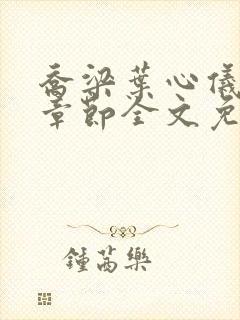 乔梁葉心儀
章節全文免
鍾茜樂